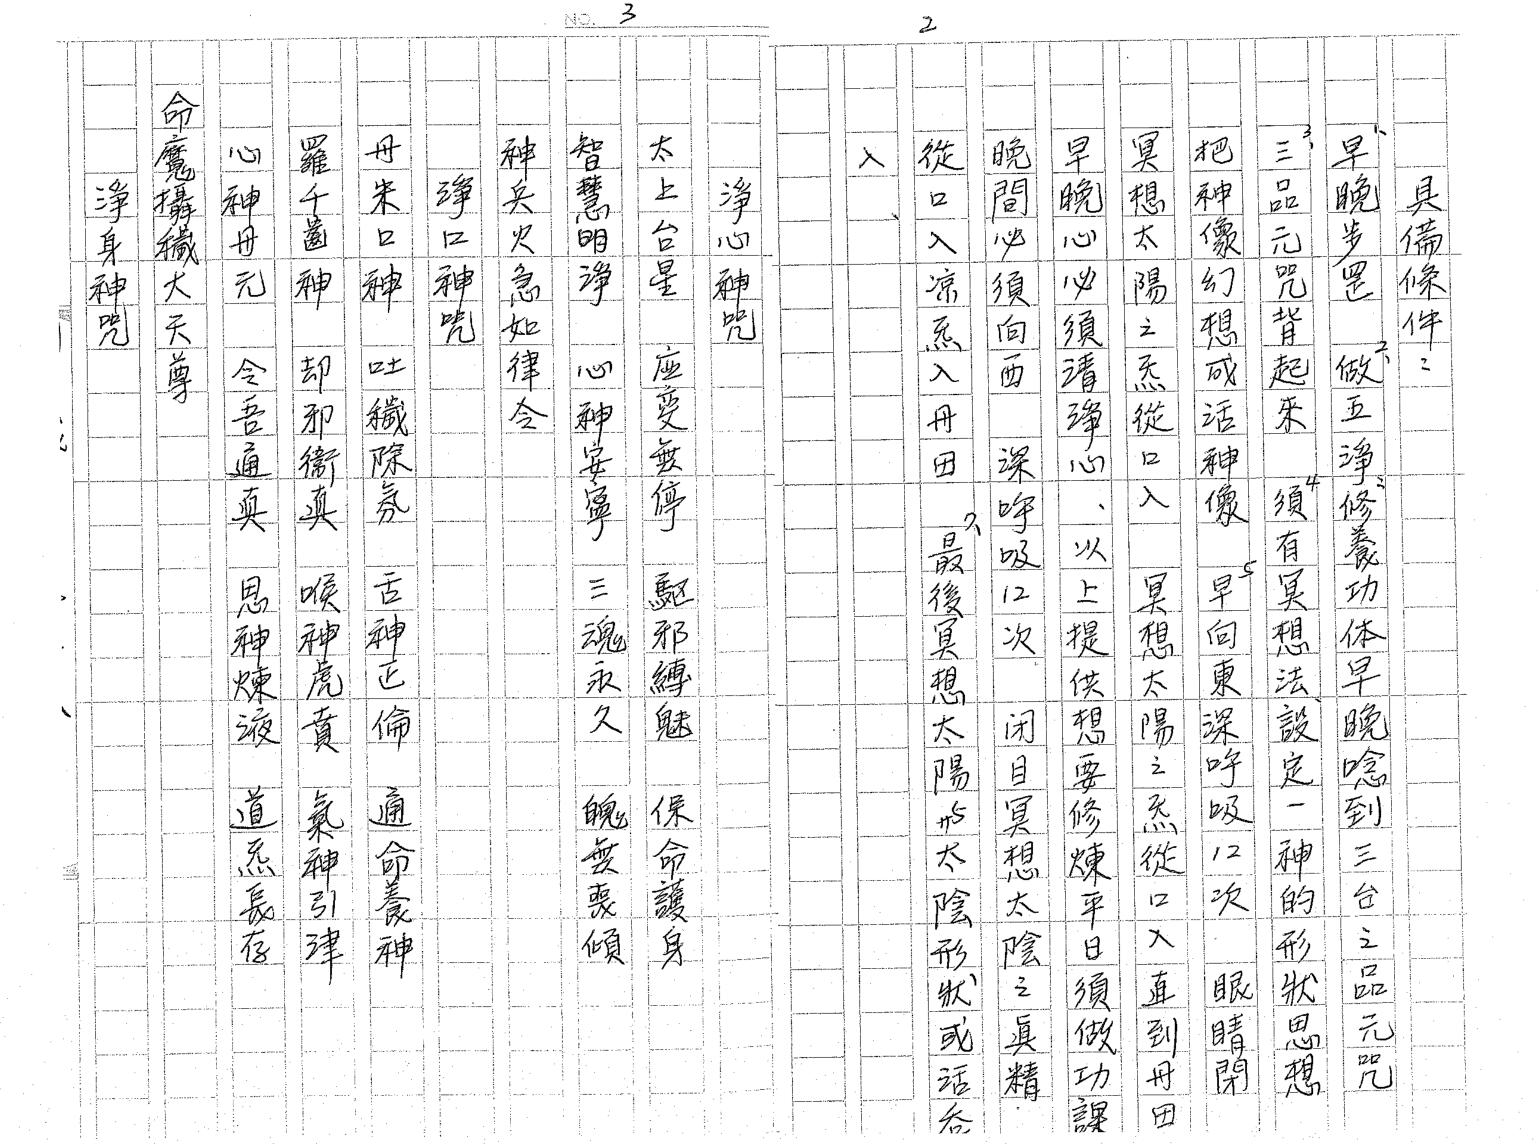 2
具備條件:
1、早晚步罡 2、做五淨 3、修養功体早晚唸到三台之品元咒
3、三品元咒背起來 4、須有冥想法設定一神的形狀思想
把神像幻想成活神像 5、早向東深呼吸12次 眼睛閉
冥想太陽之炁從口入 冥想太陽之炁從口入直到丹田
早晚心必須清淨心、以上提供想要修煉平日須做功課
晚間必須向西 深呼吸12次 閉目冥想太陰之真精
從口入涼炁入丹田 7、最後冥想太陽#5太陰形狀或活吞
入、
NO. 3
淨心神咒
太上台星 应变無停 驅邪縛魅 保命護身
智慧明淨 心神安寧 三魂永久 魄無喪傾
神兵火急如律令
淨口神咒
丹朱口神 吐穢除氛 舌神正倫 通命養神
羅千齒神 却邪衞真 喉神虎賁 氣神引津
心神丹元 令吾通真 思神煉液 道炁長存
命魔攝穢大天尊
淨身神咒